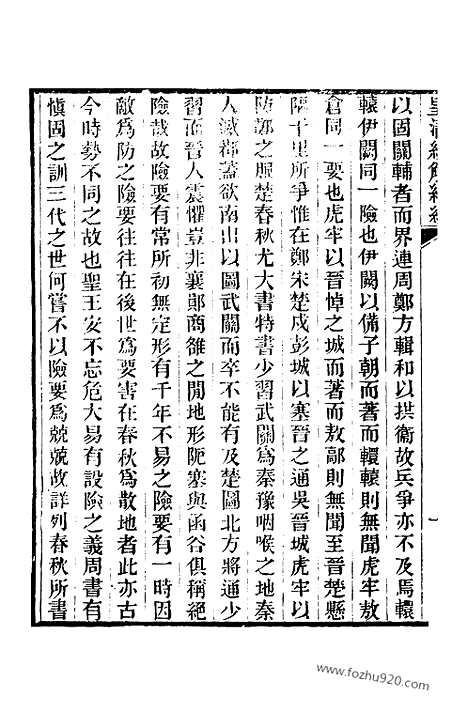 皇清經解續編
以固關輔者而界連周鄭方輯和以拱衞故兵爭亦不及焉轘
轅伊闕同一險也伊闕以備子朝而著而轘轅則無聞虎牢敖
倉同一要也虎牢以晉悼之城而著而敖鄗則無聞至晉楚懸
隔千里所爭惟在鄭宋楚戍彭城以塞晉之通吳晉城虎牢以
防鄭之服楚春秋尤大書特書少習武關爲秦豫咽喉之地秦
人滅鄀蓋欲南出以圖武關而卒不能有及楚圖北方將通少
習而晉人震懼豈非襄鄖商雒之閒地形阨塞與函谷俱稱絕
險哉故險要有常所初無定形有千年不易之險要有一時因
敵爲防之險要往往在後世爲要害在春秋爲散地者此亦古
今時勢不同之故也聖王安不忘危大易有設險之義周書有
愼固之訓三代之世何嘗不以險要爲兢兢故詳列春秋所書
www.fozhu920.com